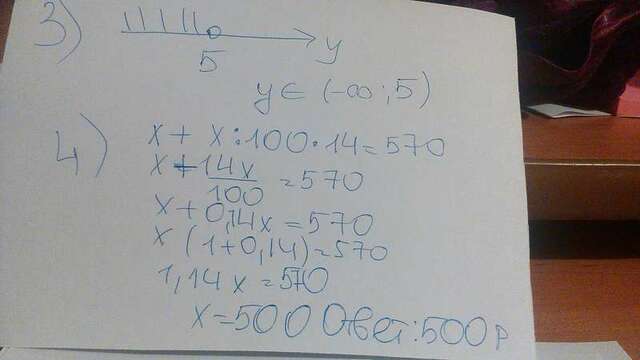 3)
y
5
y ∈ (-∞; 5)
4)
x + x:100·14=570
x+14x/100=570
x+0,14x=570
x(1+0,14)=570
1,14x=570
x=500 Ответ:500р